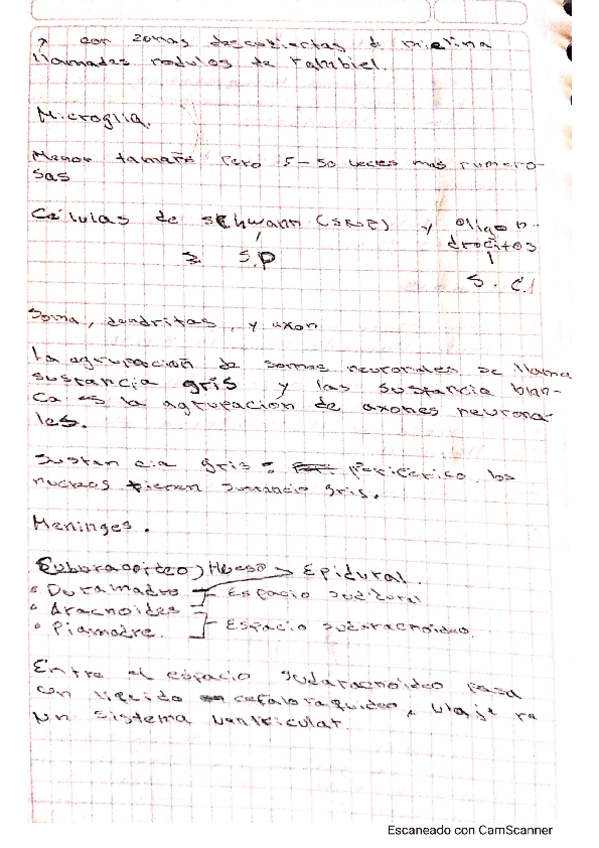 → con zonas descubiertas d mielina
llamadas nodulos de
Microglia.
Menor tamaño pero 5-50 veces mas numero-
sas
Células de schwann (     ) y oligo
drocitos
S.P
S. C.
Soma, dendritas, y axon
La agrupación de somas neuronales se llama
sustancia gris y las sustancia blan-
ca es la agrupación de axones neurona-
les.
Sustancia gris = periferico. los
nucleos tienen sustancia gris.
Meninges.
Hueso > Epidural.
• Duramadre Espacio
• Aracnoides
• Piamadre. Espacio subaracnoideo.
Entre el espacio subaracnoideo pasa
un liquido cefaloraquideo, viaja
un sistema ventricular.
Escaneado con CamScanner